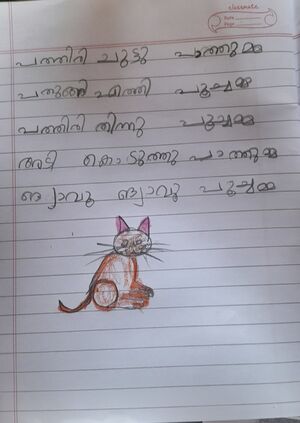 classmate
Date
Page
പത്തിരി ചുട്ടു പാത്തുമ്മ
പതുങ്ങി എത്തി പൂച്ചമ്മ
പത്തിരി തിന്നു പൂച്ചമ്മ
അടി കൊടുത്തു പാത്തുമ്മ
ങ്യാവൂ ങ്യാവൂ പൂച്ചമ്മ